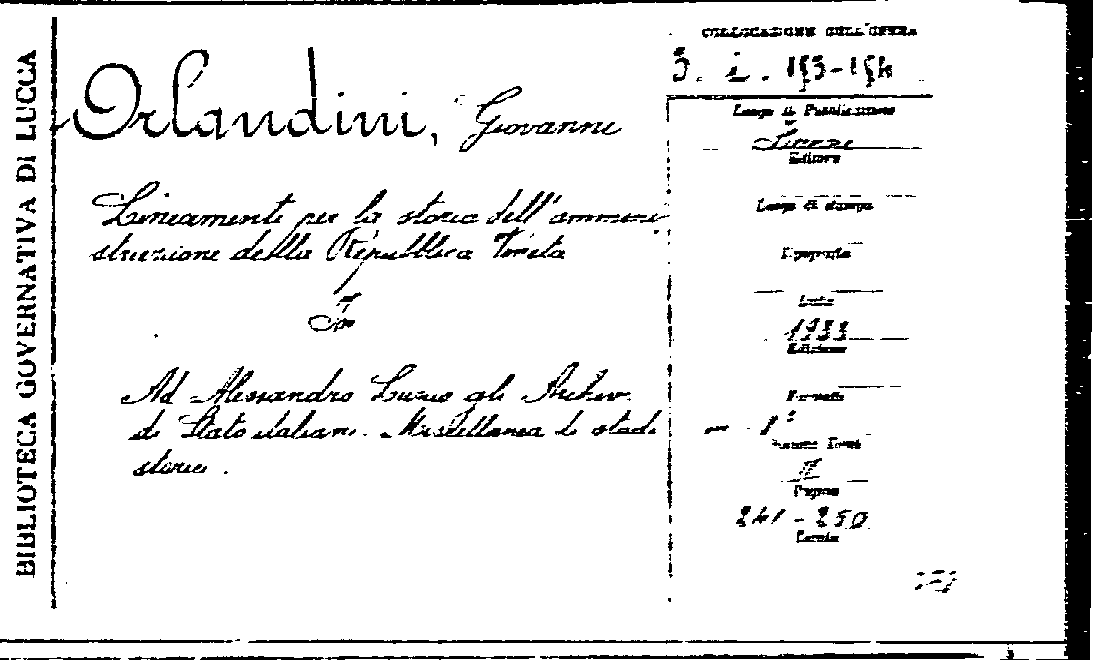 BIBLIOTECA GOVERNATIVA DI LUCCA
Orlandini, Giovanni
Lineamenti per la storia dell'ammini-
strazione della Repubblica Veneta
In
Ad Alessandro Luzio gli Archivi
di Stato italiani. Miscellanea di studi
storici.
COLLOCAZIONE DELL'OPERA
153-154
Luogo di Pubblicazione
Firenze
Editore
Luogo di stampa
Tipografia
Data
1933
Edizione
Formato
Numero Tomi
II
Pagine
241-250